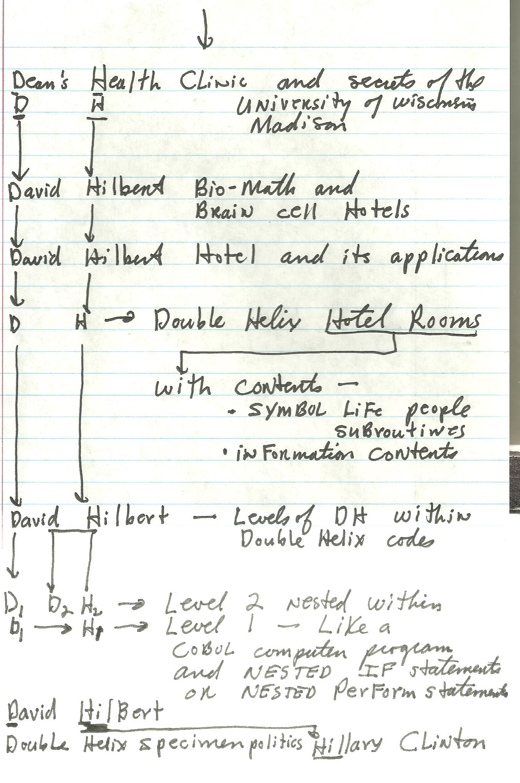 Dean's Health Clinic and secrets of the
D H University of Wisconsin
Madison
David Hilbert Bio-Math and
Brain cell Hotels
David Hilbert Hotel and its applications
D H → Double Helix Hotel Rooms
with contents —
• symbol Life people
subroutines
• information contents
David Hilbert — Levels of DH within
Double Helix codes
D1 D2 H2 → Level 2 nested within
D1 → H1 → Level 1 — Like a
COBOL computer program
and NESTED IF statements
or NESTED Perform statements
David Hilbert
Double Helix specimen politics Hillary Clinton